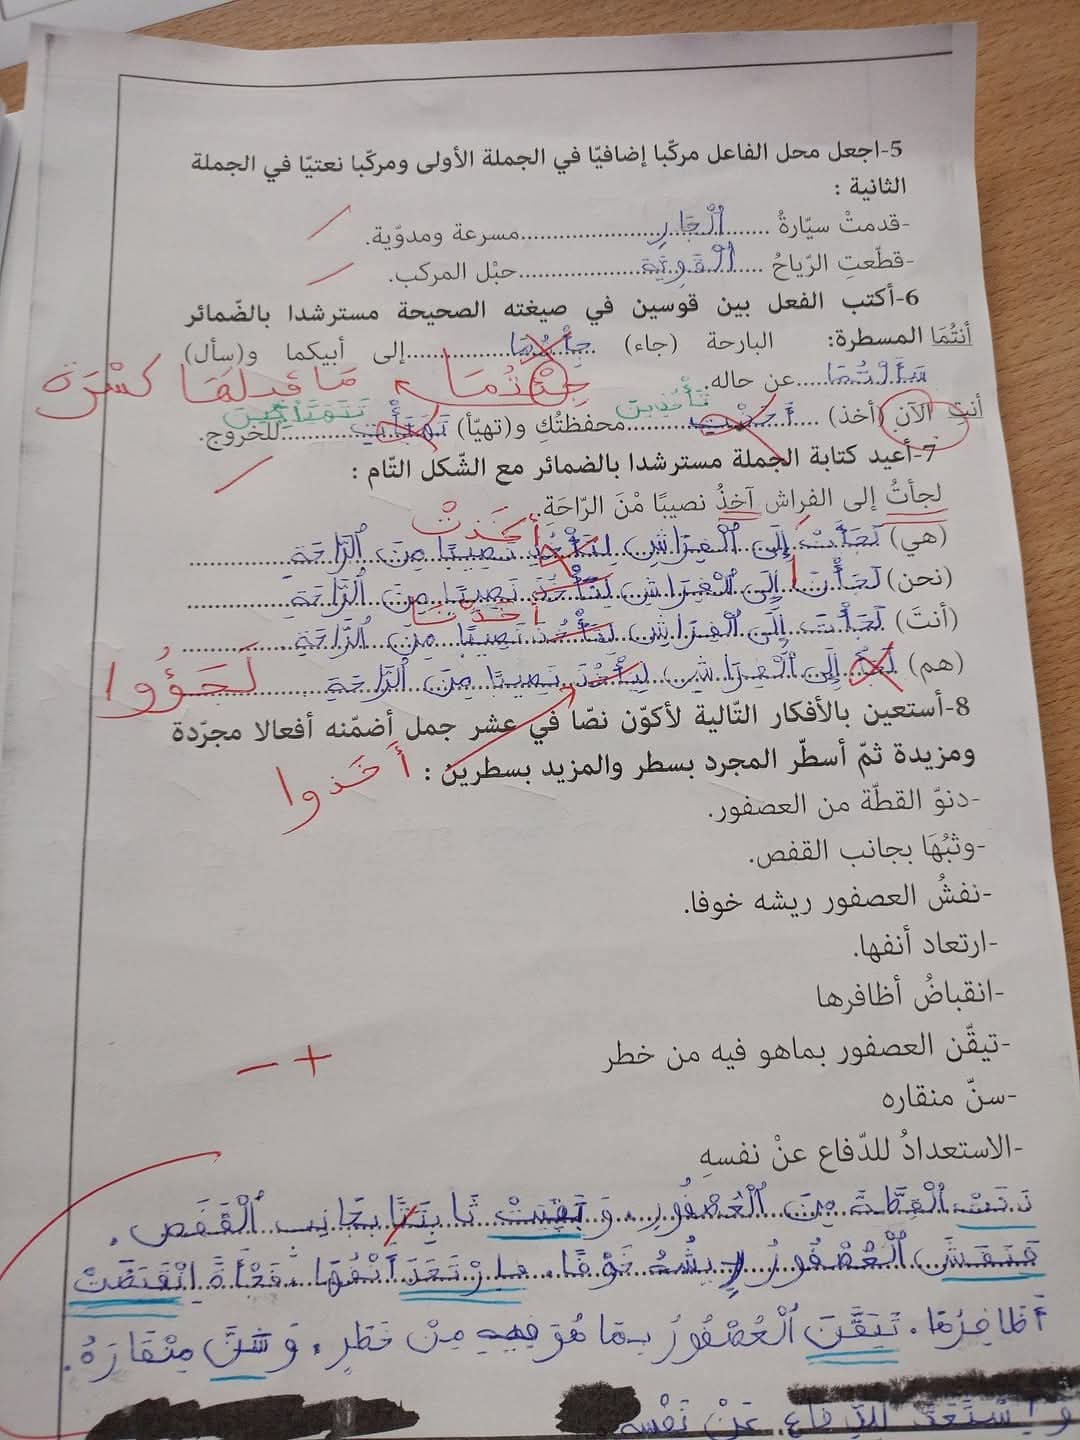 5-اجعل محل الفاعل مركّبا إضافيّا في الجملة الأولى ومركّبا نعتيّا في الجملة
الثانية :
-قدمتْ سيّارةُ ......الْجَارِ......مسرعة ومدوّية.
-قطّعتِ الرّياحُ ......الْقَوِيَّة......حبْل المركب.
6-أكتب الفعل بين قوسين في صيغته الصحيحة مسترشدا بالضّمائر
المسطرة: أنتُمَا البارحة (جاء) ............إلى أبيكما و(سأل)
جِئْتُمَا ما قبلها كسْرة
سَأَلْتُمَا......عن حاله.
تَأْخُذِينَ
أنتِ الآن (أخذ) ............محفظتُكِ و(تهيّأ) ............للخروج.
7-أعيد كتابة الجملة مسترشدا بالضمائر مع الشّكل التّام :
لجأتُ إلى الفراش آخذُ نصيبًا مْنَ الرّاحَةِ.
أَخَذَتْ
(هي) لَجَأَتْ إِلَى الْفِرَاشِ لِتَأْخُذَ نَصِيبًا مِنَ الرَّاحَةِ
(نحن) لَجَأْنَا إِلَى الْفِرَاشِ لِنَأْخُذَ نَصِيبًا مِنَ الرَّاحَةِ
أَخَذْنَا
(أنتَ) لَجَأْتَ إِلَى الْفِرَاشِ لِتَأْخُذَ نَصِيبًا مِنَ الرَّاحَةِ
(هم) إِلَى الْفِرَاشِ لِيَأْخُذَ نَصِيبًا مِنَ الرَّاحَةِ
لَجَؤُوا
8-أستعين بالأفكار التّالية لأكوّن نصّا في عشر جمل أضمّنه أفعالا مجرّدة
ومزيدة ثمّ أسطّر المجرد بسطر والمزيد بسطرين :
أَخَذُوا
-دنوّ القطّة من العصفور.
-وثبُهَا بجانب القفص.
-نفشُ العصفور ريشه خوفا.
-ارتعاد أنفها.
-انقباضُ أظافرها
-تيقّن العصفور بماهو فيه من خطر
-سنّ منقاره
-الاستعدادُ للدّفاع عنْ نفسهِ
+ -
دَنَتْ الْقِطَّةُ مِنَ الْعُصْفُورِ. وَبَقِيَتْ ثَابِتَتًا بِجَانِبِ الْقَفَصِ.
فَنَفَشَ الْعُصْفُورُ رِيشُهُ خَوْفًا. فَارْتَعَدَ أَنْفُهَا. فَجْأَةً اِنْقَبَضَتْ
أَظَافِرُهَا. تَيَقَّنَ الْعُصْفُورُ بِمَا هُوَ فِيهِ مِنْ خَطَرٍ. وَشَنَّ مِنْقَارَهُ.
وَاسْتَعَدَّ لِلدِّفَاعِ عَنْ نَفْسِهِ.